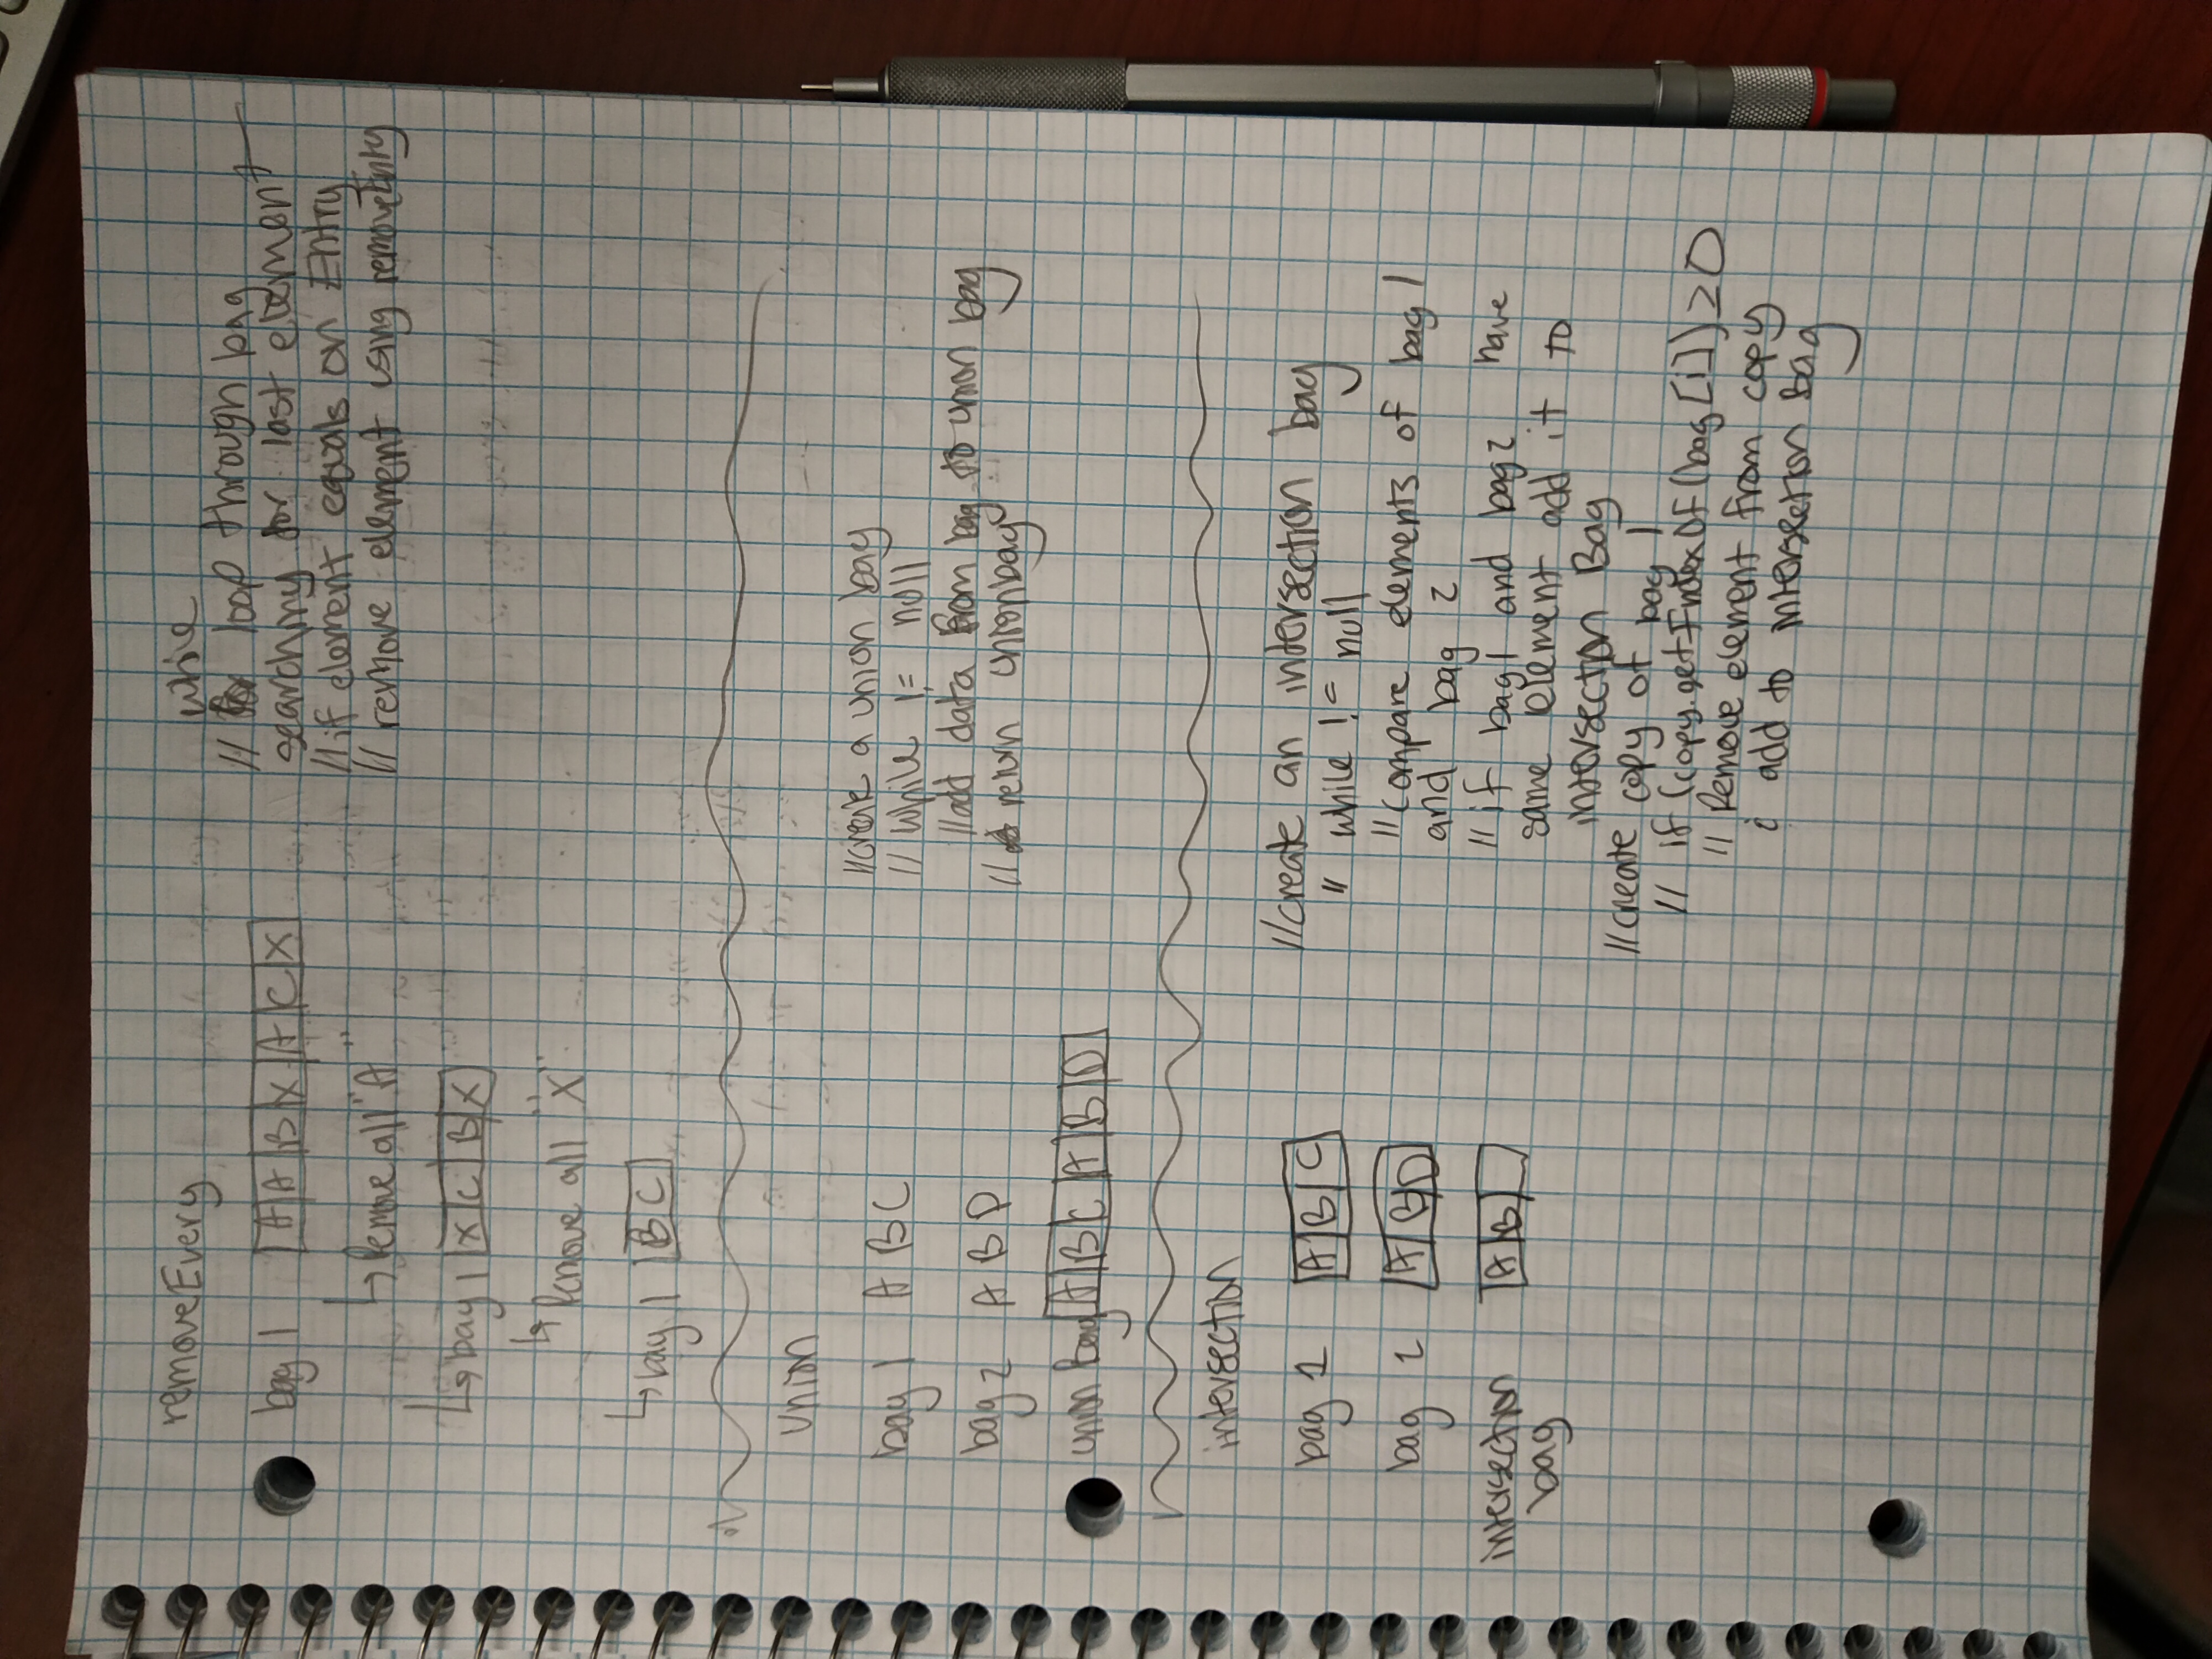 removeEvery
bag 1 A A B X A C X
↳ Remove all "A"
↳ bag 1 X C B X
↳ Remove all "X"
↳ bag 1 B C
while
// for loop through bag
searching for last element
// if element equals an Entry
// remove element using removeEntry
union
bag 1 A B C
bag 2 A B D
union Bag A B C A B D
// create a union bag
// while != null
// add data from bag to union bag
// return unionbag
intersection
bag 1 A B C
bag 2 A B D
intersection A B
bag
// create an intersection bag
// while != null
// compare elements of bag 1
and bag 2
// if bag 1 and bag 2 have
same element add it to
intersection Bag
// create copy of bag 1
// if (copy.getIndexOf(bag[i]) ≥ 0
// Remove element from copy
& add to intersection Bag